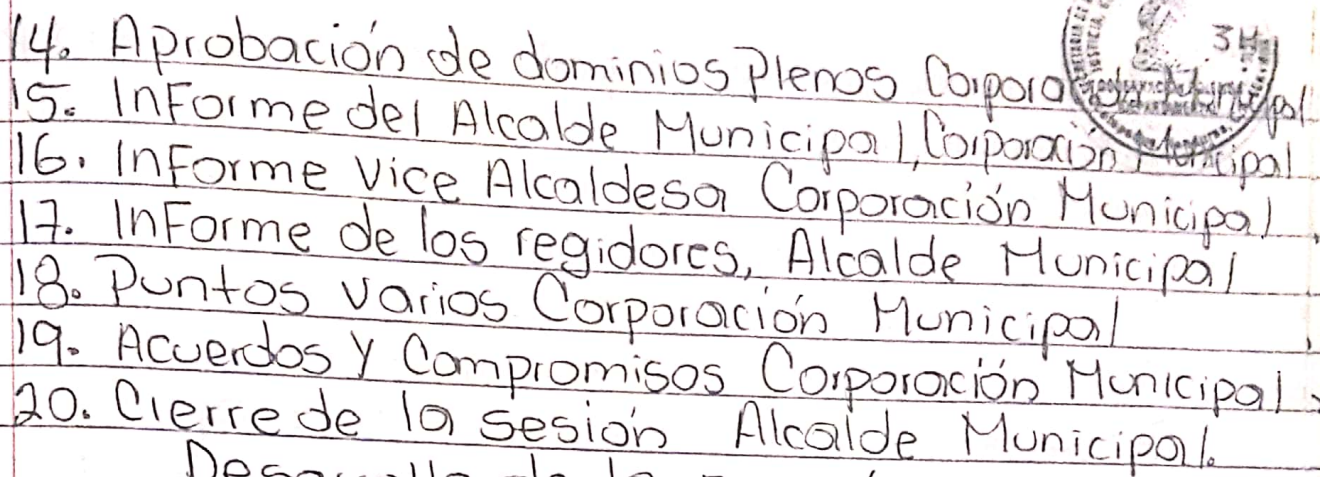 14. Aprobación de dominios Plenos
3H
15. Informe del Alcalde Municipal, Corporación Municipal
16. Informe Vice Alcaldesa Corporación Municipal
17. Informe de los regidores, Alcalde Municipal
18. Puntos varios Corporación Municipal
19. Acuerdos y Compromisos Corporación Municipal
20. Cierre de la sesión Alcalde Municipal.